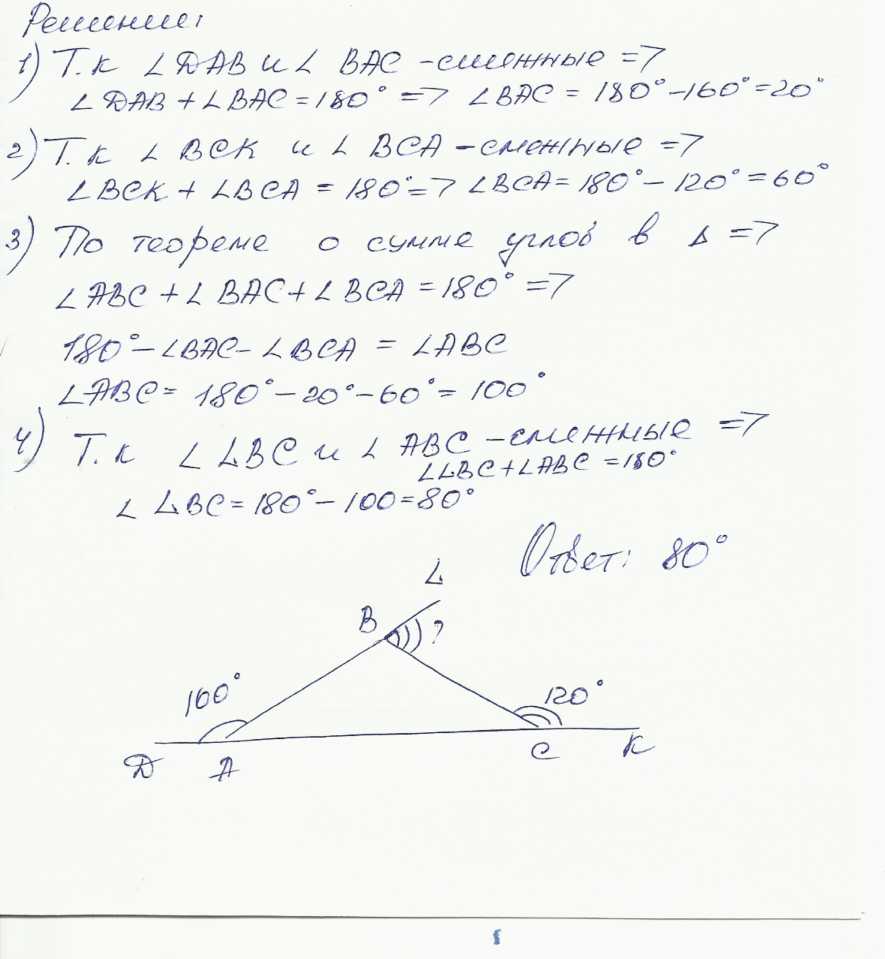 Решение:
1) Т.к ∠DAB и ∠ BAC - смежные =>
∠DAB + ∠BAC = 180° => ∠BAC = 180° - 160° = 20°
2) Т.к ∠ BCK и ∠ BCA - смежные =>
∠BCK + ∠BCA = 180° => ∠BCA = 180° - 120° = 60°
3) По теореме о сумме углов в Δ =>
∠ABC + ∠ BAC + ∠ BCA = 180° =>
180° - ∠BAC - ∠BCA = ∠ABC
∠ABC = 180° - 20° - 60° = 100°
4) Т.к ∠ LBC и ∠ ABC - смежные =>
∠LBC + ∠ABC = 180°
∠ LBC = 180° - 100 = 80°
Ответ: 80°
L
B ?
160° 120°
D A C K